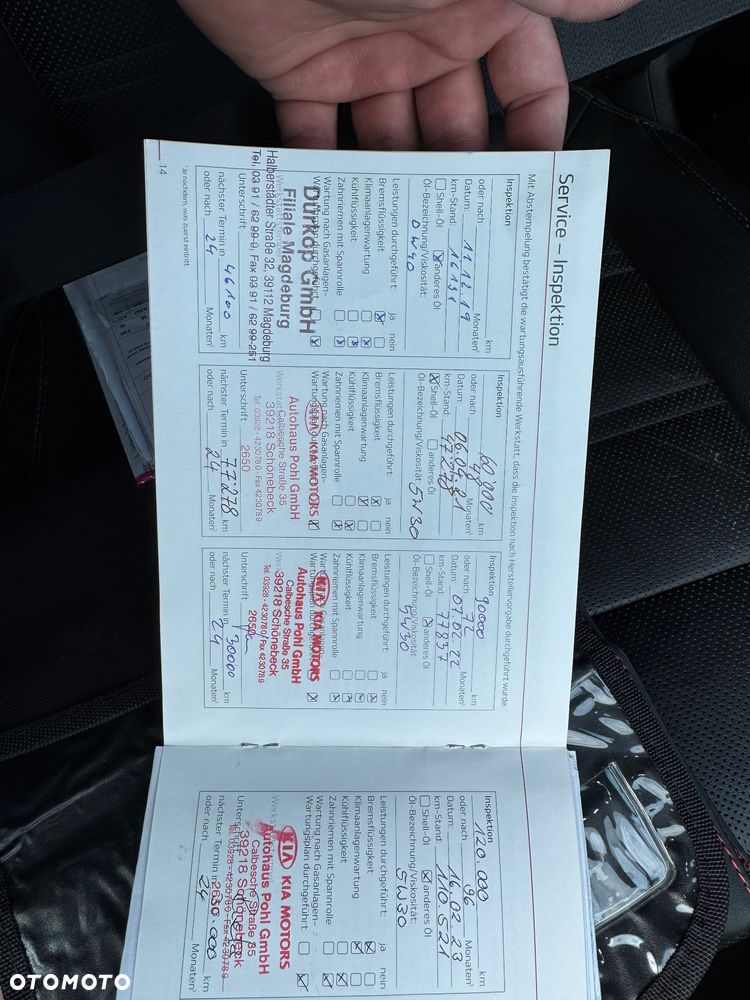 Service – Inspektion
Mit Abstempelung bestätigt die wartungsausführende Werkstatt, dass die Inspektion nach Herstellervorgabe durchgeführt wurde
Inspektion
km
oder nach Monaten¹
Datum: 11.12.19
km-Stand: 16131
Shell-Öl anderes Öl
Öl-Bezeichnung/Viskosität:
0W40
Leistungen durchgeführt: ja nein
Bremsflüssigkeit
Klimaanlagenwartung
Kühlflüssigkeit
Zahnriemen mit Spannrolle
Wartung nach Gasanlagen-
Dürkop GmbH
Filiale Magdeburg
Halberstädter Straße 32, 39112 Magdeburg
Tel. 03 91 / 62 99-0, Fax 03 91 / 62 99-251
Unterschrift
nächster Termin in 46100 km
oder nach 24 Monaten¹
Inspektion
60'000 km
oder nach 48 Monaten¹
Datum: 06.04.21
km-Stand: 47278
Shell-Öl anderes Öl
Öl-Bezeichnung/Viskosität: 5W30
Leistungen durchgeführt ja nein
Bremsflüssigkeit
Klimaanlagenwartung
Kühlflüssigkeit
Zahnriemen mit Spannrolle
Wartung nach Gasanlagen-
KIA KIA MOTORS
Autohaus Pohl GmbH
Calbesche Straße 35
39218 Schönebeck
Tel. 03928 - 4230780 · Fax 4230789
Unterschrift 2650
nächster Termin in 77278 km
oder nach 24 Monaten¹
Inspektion
90000 km
oder nach 72 Monaten¹
Datum: 07.02.22
km-Stand: 77837
Shell-Öl anderes Öl
Öl-Bezeichnung/Viskosität:
5W30
Leistungen durchgeführt ja nein
Bremsflüssigkeit
Klimaanlagenwartung
Kühlflüssigkeit
Zahnriemen mit Spannrolle
KIA KIA MOTORS
Autohaus Pohl GmbH
Calbesche Straße 35
39218 Schönebeck
Tel. 03928 - 4230780 / Fax 4230789
Unterschrift 2650
nächster Termin in 30000 km
oder nach 24 Monaten¹
¹ Je nachdem, was zuerst eintritt
14
Inspektion
120.000 km
oder nach 96 Monaten¹
Datum: 16.02.23
km-Stand: 110521
Shell-Öl anderes Öl
Öl-Bezeichnung/Viskosität:
5W30
Leistungen durchgeführt: ja nein
Bremsflüssigkeit
Klimaanlagenwartung
Kühlflüssigkeit
Zahnriemen mit Spannrolle
Wartung nach Gasanlagen-
Wartungsplan durchgeführt
KIA KIA MOTORS
Autohaus Pohl GmbH
Calbesche Straße 35
39218 Schönebeck
Tel. 03928 - 4230780 / Fax 4230789
nächster Termin in km
oder nach 24 Monaten¹
OTOMOTO